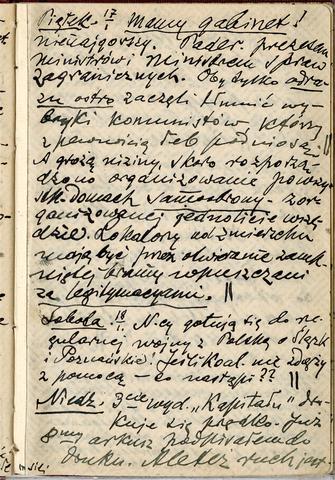 Piątek. 17/I Mamy gabinet!
nienajgorszy. Pader. prezesem
ministrów i ministrem spraw
zagranicznych. Oby tylko odra-
zu ostro zaczęli tłumić wy-
bryki komunistów, którzy
z pewnością łeb podniosą.
A grożą niziny, skoro rozporzą-
dzono organizowanie powszę
po domach samoobrony - zor-
ganizowanej jednolicie wszę-
dzie. Lokatorzy od zmierzchu
mają być przez otworzenie zamk-
niętej bramy wpuszczeni
za legitymacyami. ||
Sobota 18/I. Niemcy gotują się do re-
gularnej wojny z Polską o Śląsk
i Poznańskie! Jeśli koal. nie zdąży
z pomocą - co nastąpi?? ||
Niedz. 3cie wyd. "Kapitału" dru-
kuje się prędko. Już
8my arkusz podpisałem do
druku. Ale też ruch jest